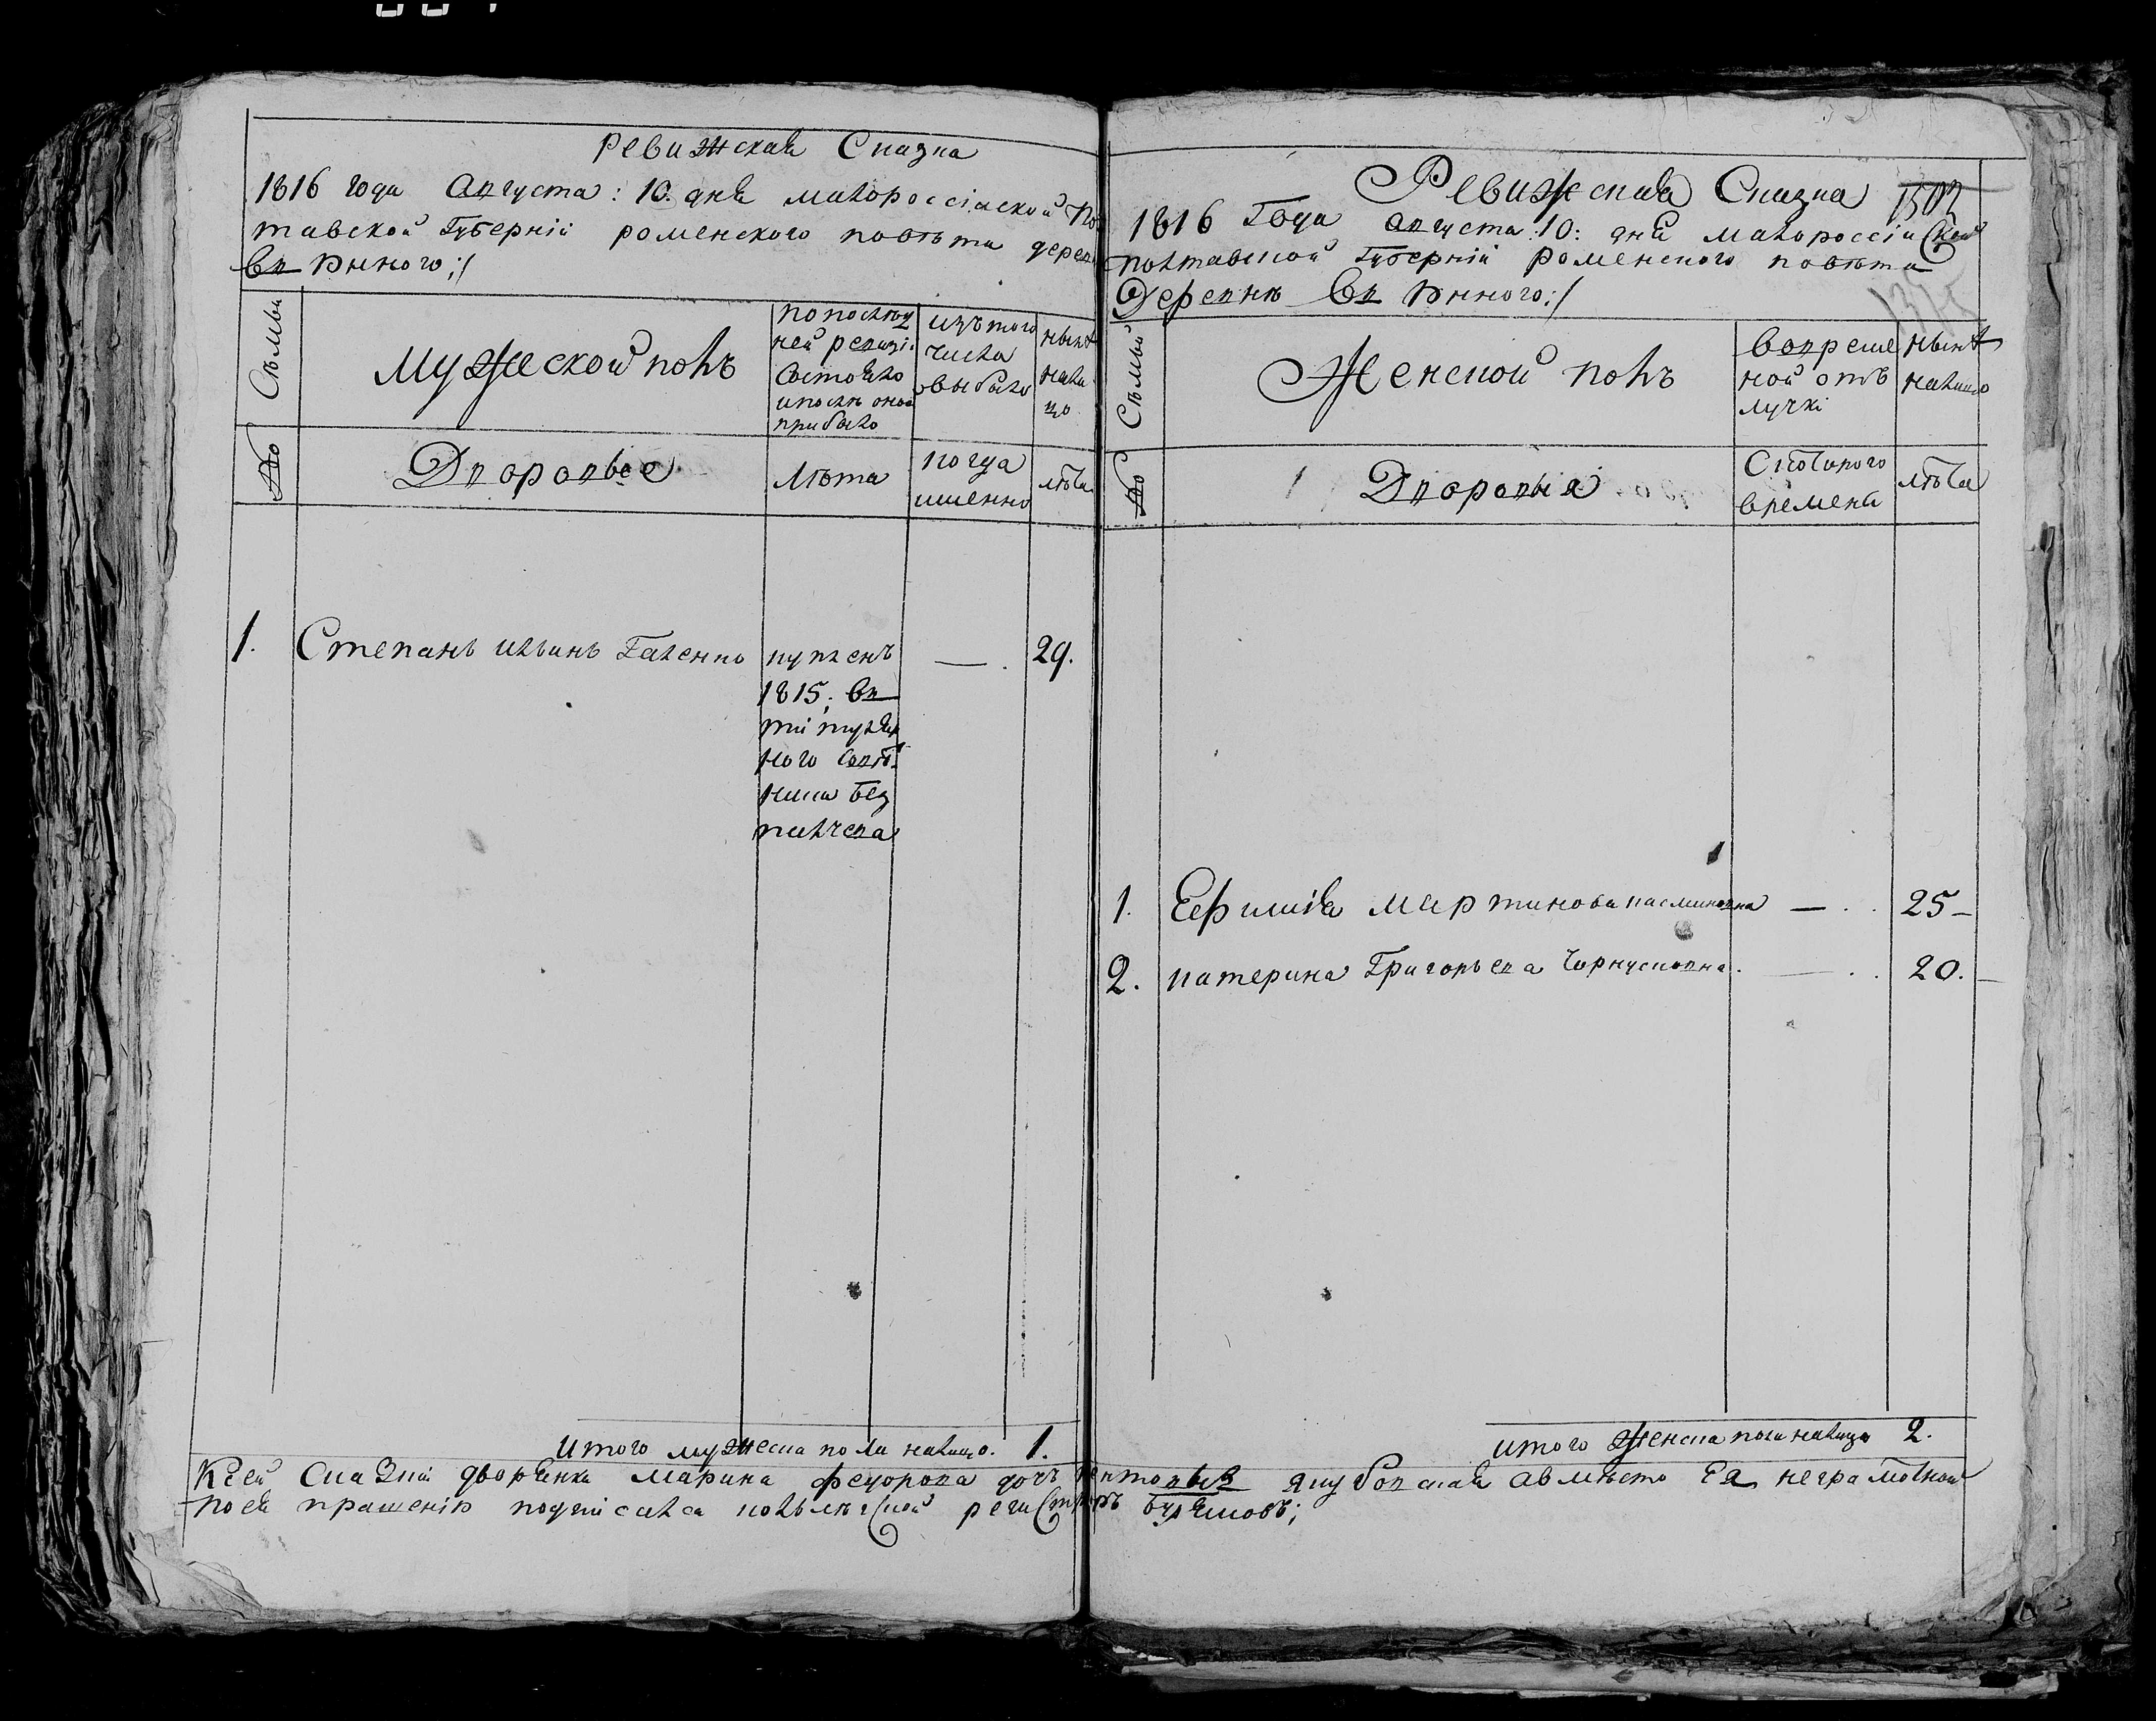 Ревижская Сказка
1816 года Августа: 10. дня малороссійской По
тавской Губерніи роменского повѣта дерев
Вл Ржного;/
Сѣмьи
Мужеской полъ
по послѣд
ней ревизіи
Состояло
и послѣ оной
прибыло
изъ того
числа
выбыло
нынѣ
нали
цо
№
Дворовые
Лѣта
когда
именно
лѣта
1. Степанъ ильинъ Галенко
купленъ — . 29.
1815;
титуляр
ного совѣт.
ника
Итого мужеска пола налицо. 1.
Ревижская Сказка
1816 Года Августа: 10: дня малороссійской
полтавской Губерніи роменского повѣта
Деревнѣ Вл Ржного;/
Сѣмьи
Женской полъ
Вовреме
ной отъ
лучкі
нынѣ
налицо
№
Дворовыя
Скотораго
времени
лѣта
1. Ефимія Мартинова — 25 –
2. катерина Григорьева Чорнусковна. — 20.
итого женска пола налицо 2.
Ксей Сказкй дворянка Марина федорова дочь Якубовская авместо Ея неграмотной
по ея прошенію подписался регистраторъ